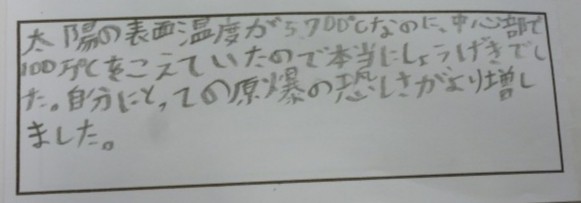 太陽の表面温度が5,700℃なのに、中心部で
100万℃をこえていたので本当にしょうげきでし
た。自分にとっての原爆の恐しさがより増し
ました。